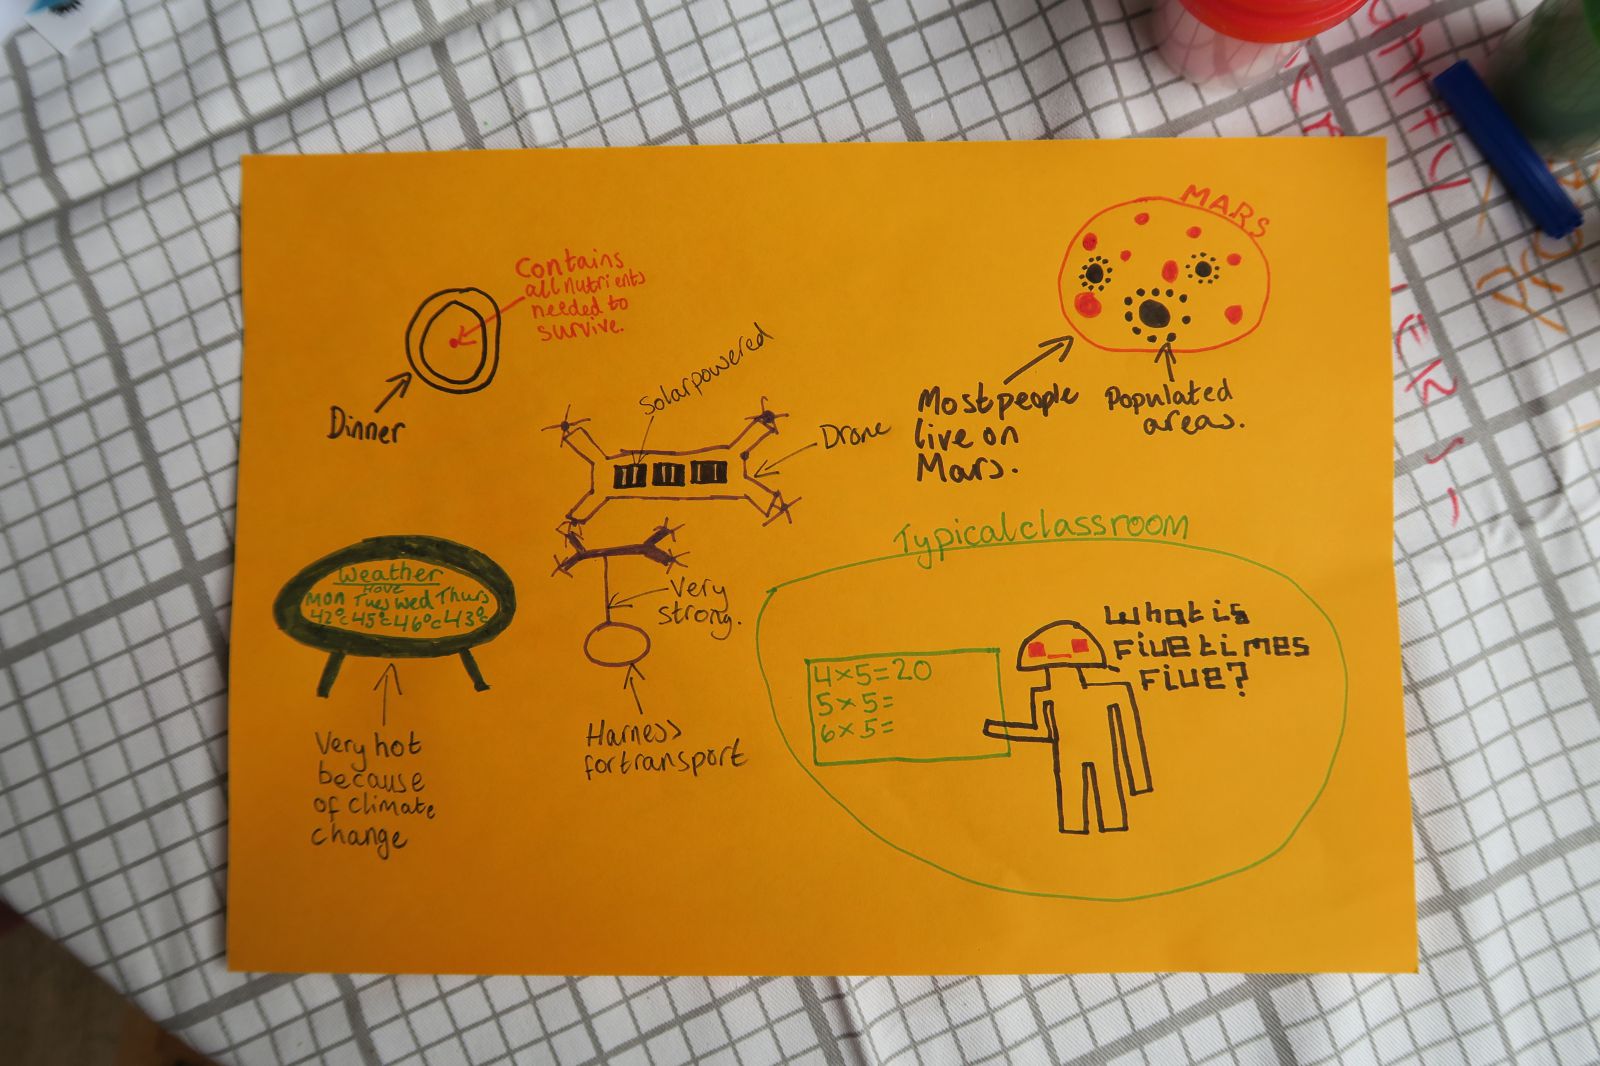 MARS
Contains
all nutrients
needed to
survive.
Dinner
Solar powered
Drone
Most people
live on
Mars.
Populated
areas.
Weather
Mon Tues Wed Thurs
42°c 45°c 46°c 43°c
Very hot
because
of climate
change
Very
strong.
Harness
for transport
Typical classroom
4×5=20
5×5=
6×5=
What is
Five times
Five?